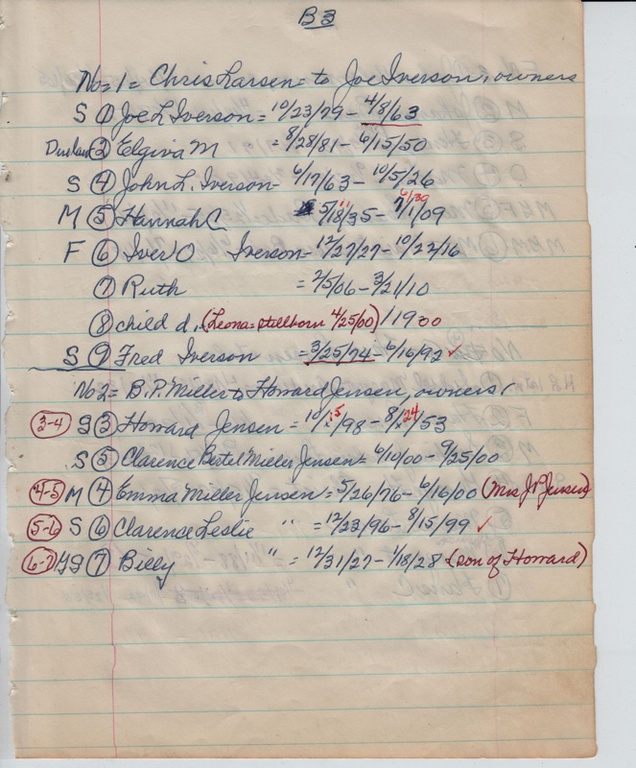 B3
No = 1 = Chris Larsen = to Joe Iverson, owners
S ① Joe L Iverson = 10/23/79 - 4/8/63
② Elgiva M = 8/28/81 - 6/15/50
S ④ John L. Iverson - 6/17/63 - 10/5/26
M ⑤ Hannah C 5/18/35 - 7/1/09
F ⑥ Iver O Iverson = 12/27/27 - 10/22/16
⑦ Ruth = 2/5/06 - 3/21/10
⑧ child d. (Leona = stillborn 4/25/00) / 1900
S ⑨ Fred Iverson = 3/25/74 - 6/16/92 ✓
No 2 = B.P. Miller to Howard Jensen, owners
(3-4) S ③ Howard Jensen = 10/15/98 - 8/24/53
S ⑤ Clarence Bertel Miller Jensen = 6/10/00 - 9/25/00
(4-5) M ④ Emma Miller Jensen = 5/26/76 - 6/16/00 (Mrs J P Jensen)
(5-6) S ⑥ Clarence Leslie " = 12/23/96 - 8/15/99 ✓
(6-7) GS ⑦ Billy " = 12/31/27 - 1/18/28 (son of Howard)